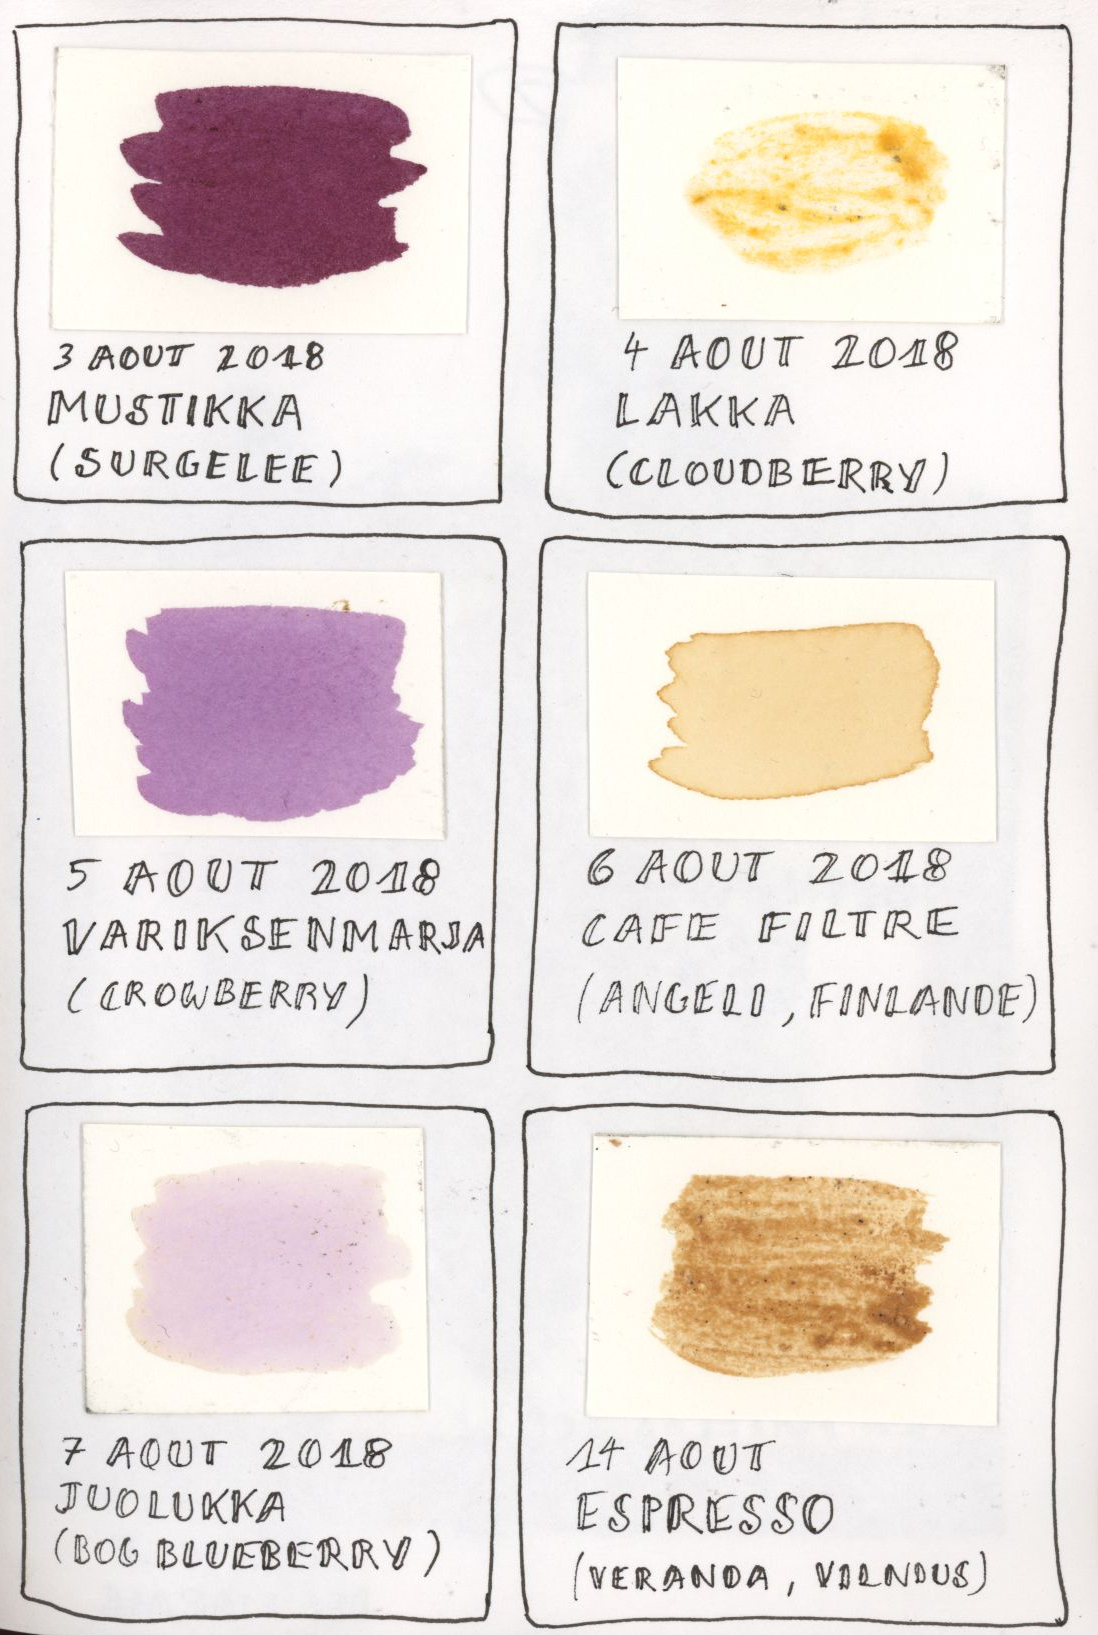 3 AOUT 2018
MUSTIKKA
(SURGELEE)
4 AOUT 2018
LAKKA
(CLOUDBERRY)
5 AOUT 2018
VARIKSENMARJA
(CROWBERRY)
6 AOUT 2018
CAFE FILTRE
(ANGELI, FINLANDE)
7 AOUT 2018
JUOLUKKA
(BOG BLUEBERRY)
14 AOUT
ESPRESSO
(VERANDA, VILNIUS)